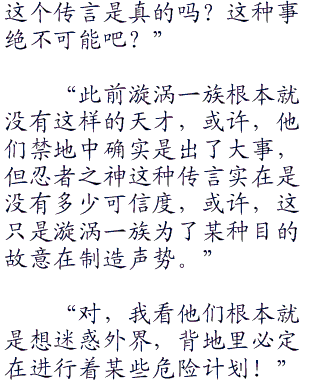 这个传言是真的吗？这种事
绝不可能吧？”
“此前漩涡一族根本就
没有这样的天才，或许，他
们禁地中确实是出了大事，
但忍者之神这种传言实在是
没有多少可信度，或许，这
只是漩涡一族为了某种目的
故意在制造声势。”
“对，我看他们根本就
是想迷惑外界，背地里必定
在进行着某些危险计划！”